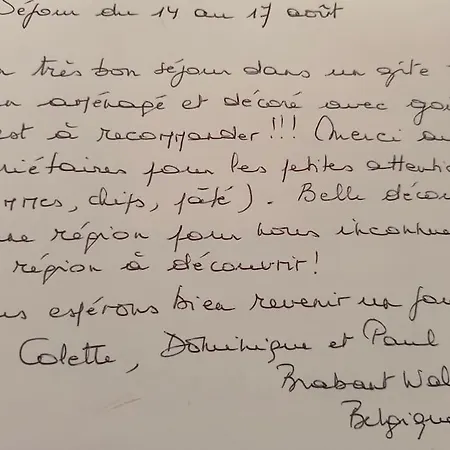 Séjour du 14 au 17 août
très bon séjour dans un gîte
aménagé et décoré avec
est à recommander!!! Merci
riétaires pour les petites attenti
mmes, chips, pâté). Belle décou
ne région pour nous inconnue
région à découvrir!
us espérons bien revenir un jou
Colette, Dominique et Paul
Brabant Wal
Belgique